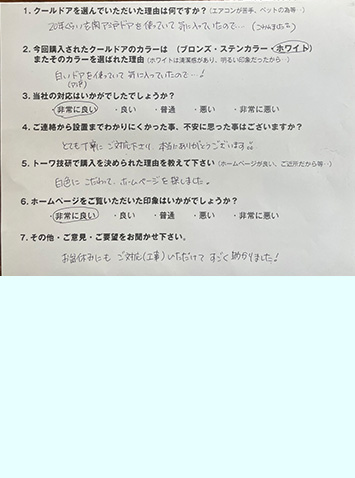 1. クールドアを選んでいただいた理由は何ですか？（エアコンが苦手、ペットの為等…）
20年くらい玄関アミ戸ドアを使っていて気に入っていたので…
2. 今回購入されたクールドアのカラーは （ブロンズ・ステンカラー・ホワイト）
またそのカラーを選ばれた理由（ホワイトは清潔感があり、明るい印象だったから…）
白いドアを使っていて気に入っていたので…！
3. 当社の対応はいかがでしたでしょうか？
・非常に良い ・良い ・普通 ・悪い ・非常に悪い
4. ご連絡から設置までわかりにくかった事、不安に思った事はございますか？
とても丁寧にご対応下さり、本当にありがとうございます。
5. トーワ技研で購入を決められた理由を教えて下さい（ホームページが良い、ご近所だから等…）
白色にこだわって、ホームページを探しました。
6. ホームページをご覧いただいた印象はいかがでしょうか？
・非常に良い ・良い ・普通 ・悪い ・非常に悪い
7. その他・ご意見・ご要望をお聞かせ下さい。
お盆休みにもご対応(工事)いただけてすごく助かりました！